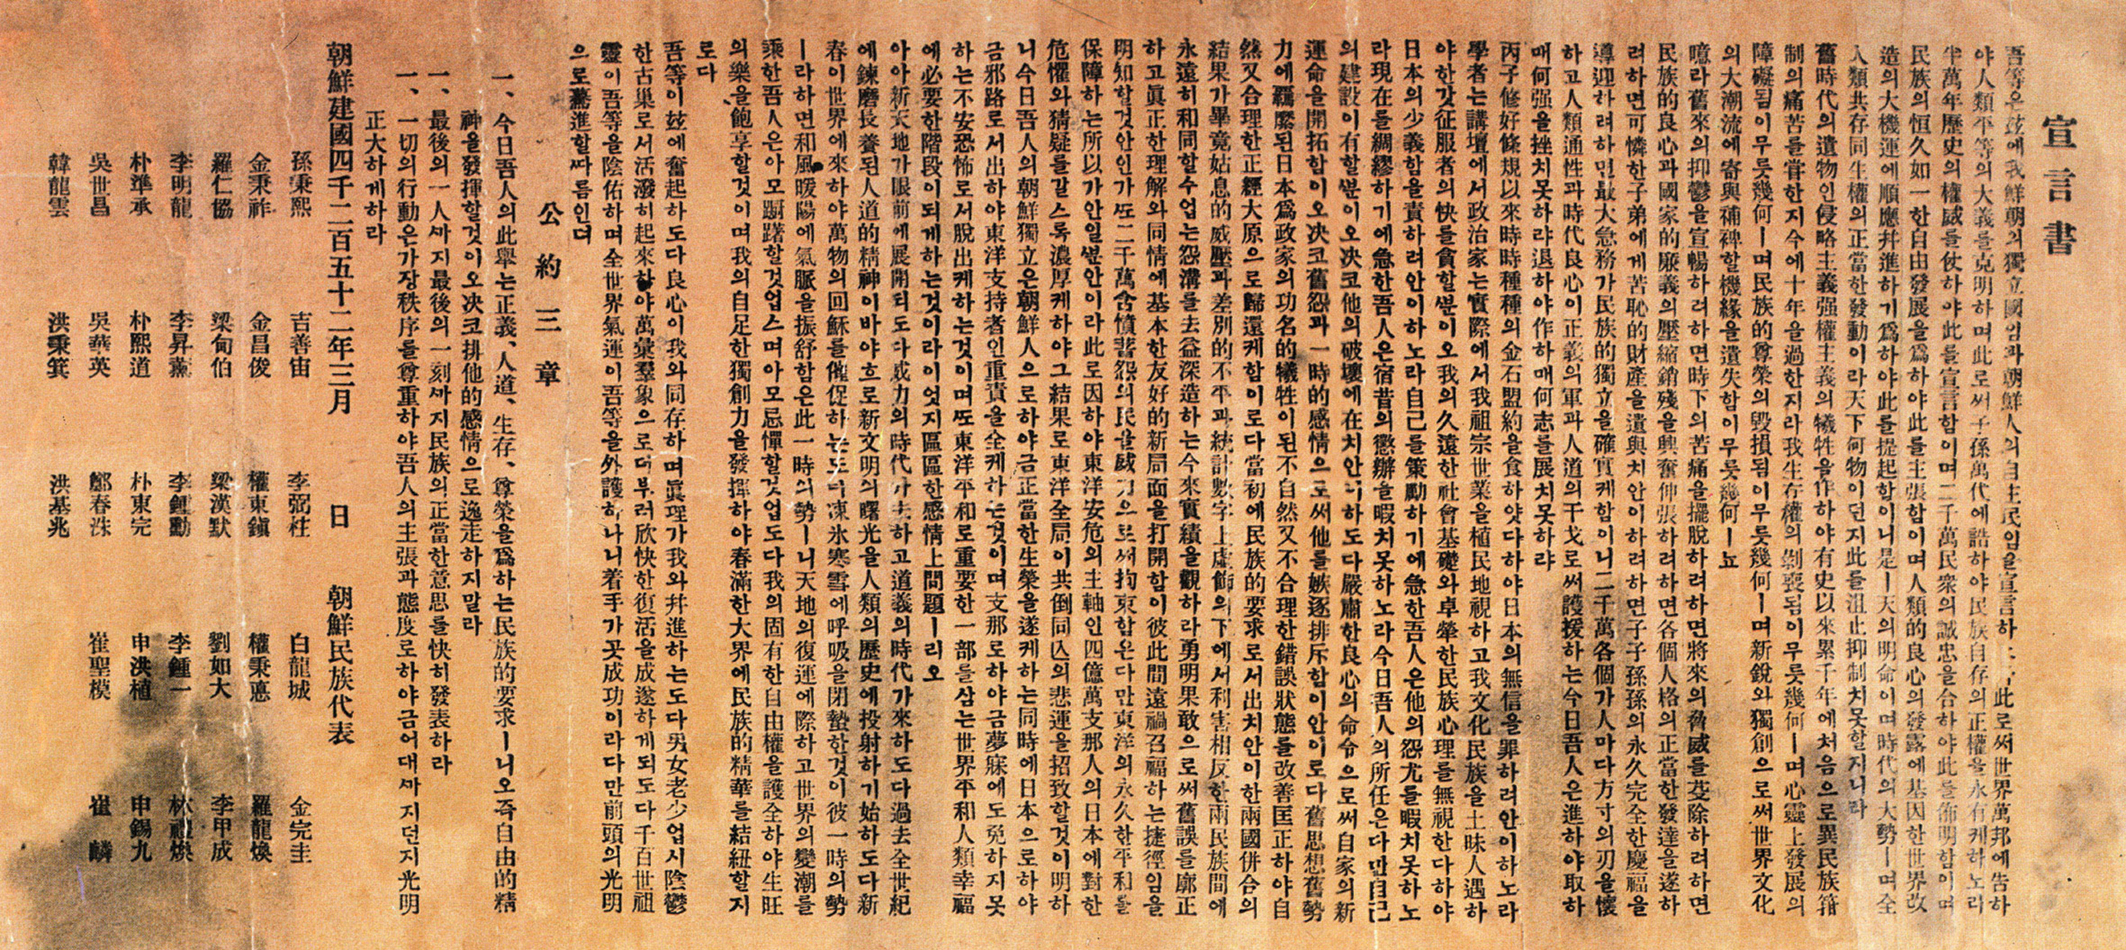 宣言書
吾等은玆에我鮮朝의獨立國임과朝鮮人의自主民임을宣言하노라此로써世界萬邦에告하
야人類平等의大義를克明하며此로써子孫萬代에誥하야民族自存의正權을永有케하노라
半萬年歷史의權威를仗하야此를宣言함이며二千萬民衆의誠忠을合하야此를佈明함이며
民族의恒久如一한自由發展을爲하야此를主張함이며人類的良心의發露에基因한世界改
造의大機運에順應幷進하기爲하야此를提起함이니是ㅣ天의明命이며時代의大勢ㅣ며全
人類共存同生權의正當한發動이라天下何物이던지此를沮止抑制치못할지니라
舊時代의遺物인侵略主義强權主義의犧牲을作하야有史以來累千年에처음으로異民族箝
制의痛苦를嘗한지今에十年을過한지라我生存權의剝喪됨이무릇幾何ㅣ며心靈上發展의
障礙됨이무릇幾何ㅣ며民族的尊榮의毁損됨이무릇幾何ㅣ며新銳와獨創으로써世界文化
의大潮流에寄與補裨할機緣을遺失함이무릇幾何ㅣ뇨
噫라舊來의抑鬱을宣暢하려하면時下의苦痛을擺脫하려하면將來의脅威를芟除하려하면
民族的良心과國家的廉義의壓縮銷殘을興奮伸張하려하면各個人格의正當한發達을遂하
려하면可憐한子弟에게苦恥的財產을遺與치안이하려하면子子孫孫의永久完全한慶福을
導迎하려하면最大急務가民族的獨立을確實케함이니二千萬各個가人마다方寸의刃을懷
하고人類通性과時代良心이正義의軍과人道의干戈로써護援하는今日吾人은進하야取하
매何强을挫치못하랴退하야作하매何志를展치못하랴
丙子修好條規以來時時種種의金石盟約을食하얏다하야日本의無信을罪하려안이하노라
學者는講壇에서政治家는實際에서我祖宗世業을植民地視하고我文化民族을土昧人遇하
야한갓征服者의快를貪할뿐이오我의久遠한社會基礎와卓犖한民族心理를無視한다하야
日本의少義함을責하려안이하노라自己를策勵하기에急한吾人은他의怨尤를暇치못하노
라現在를綢繆하기에急한吾人은宿昔의懲辦을暇치못하노라今日吾人의所任은다만自己
의建設이有할뿐이오決코他의破壞에在치안이하도다嚴肅한良心의命令으로써自家의新
運命을開拓함이오決코舊怨과一時的感情으로써他를嫉逐排斥함이안이로다舊思想舊勢
力에羈縻된日本爲政家의功名的犧牲이된不自然又不合理한錯誤狀態를改善匡正하야自
然又合理한正經大原으로歸還케함이로다當初에民族的要求로서出치안이한兩國併合의
結果가畢竟姑息的威壓과差別的不平과統計數字上虛飾의下에서利害相反한兩民族間에
永遠히和同할수업는怨溝를去益深造하는今來實績을觀하라勇明果敢으로써舊誤를廓正
하고眞正한理解와同情에基本한友好的新局面을打開함이彼此間遠禍召福하는捷徑임을
明知할것안인가또二千萬含憤蓄怨의民을威力으로써拘束함은다만東洋의永久한平和를
保障하는所以가안일뿐안이라此로因하야東洋安危의主軸인四億萬支那人의日本에對한
危懼와猜疑를갈스록濃厚케하야그結果로東洋全局이共倒同亡의悲運을招致할것이明하
니今日吾人의朝鮮獨立은朝鮮人으로하야금正當한生榮을遂케하는同時에日本으로하야
금邪路로서出하야東洋支持者인重責을全케하는것이며支那로하야금夢寐에도免하지못
하는不安恐怖로서脫出케하는것이며또東洋平和로重要한一部를삼는世界平和人類幸福
에必要한階段이되게하는것이라이엇지區區한感情上問題ㅣ리오
아아新天地가眼前에展開되도다威力의時代가去하고道義의時代가來하도다過去全世紀
에鍊磨長養된人道的精神이바야흐로新文明의曙光을人類의歷史에投射하기始하도다新
春이世界에來하야萬物의回穌를催促하는도다凍氷寒雪에呼吸을閉蟄한것이彼一時의勢
ㅣ라하면和風暖陽에氣脈을振舒함은此一時의勢ㅣ니天地의復運에際하고世界의變潮를
乘한吾人은아모躕躇할것업스며아모忌憚할것업도다我의固有한自由權을護全하야生旺
의樂을飽享할것이며我의自足한獨創力을發揮하야春滿한大界에民族的精華를結紐할지
로다
吾等이玆에奮起하도다良心이我와同存하며眞理가我와幷進하는도다男女老少업시陰鬱
한古巢로서活潑히起來하야萬彙羣象으로더부러欣快한復活을成遂하게되도다千百世祖
靈이吾等을陰佑하며全世界氣運이吾等을外護하나니着手가곳成功이라다만前頭의光明
으로驀進할따름인뎌
公約三章
一、今日吾人의此擧는正義、人道、生存、尊榮을爲하는民族的要求ㅣ니오즉自由的精
神을發揮할것이오決코排他的感情으로逸走하지말라
一、最後의一人까지最後의一刻까지民族의正當한意思를快히發表하라
一、一切의行動은가장秩序를尊重하야吾人의主張과態度로하야금어대까지던지光明
正大하게하라
朝鮮建國四千二百五十二年三月 日 朝鮮民族代表
孫秉熙 吉善宙 李弼柱 白龍城 金完圭
金秉祚 金昌俊 權東鎭 權秉悳 羅龍煥
羅仁協 梁甸伯 梁漢默 劉如大 李甲成
李明龍 李昇薰 李鍾勳 李鍾一 林禮煥
朴準承 朴熙道 朴東完 申洪植 申錫九
吳世昌 吳華英 鄭春洙 崔聖模 崔麟
韓龍雲 洪秉箕 洪基兆